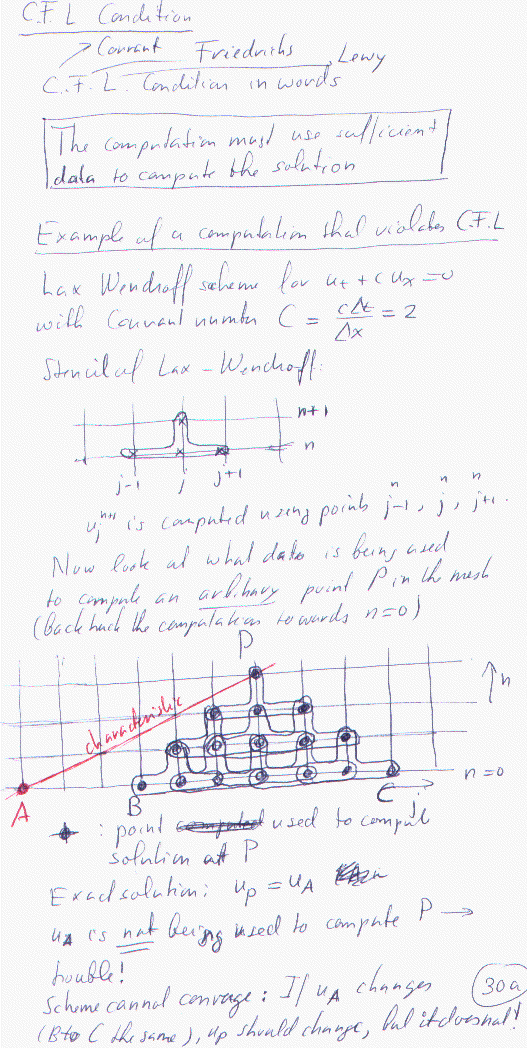 C.F.L Condition
Courant Friedrichs, Lewy
C.F.L. Condition in words
The computation must use sufficient
data to compute the solution
Example of a computation that violates C.F.L
Lax Wendroff scheme for u_t + c u_x = 0
with Courant number C = cΔt/Δx = 2
Stencil of Lax-Wendroff:
n+1
n
j-1 j j+1
u_j^{n+1} is computed using points j-1^n, j^n, j+1^n.
Now look at what data is being used
to compute an arbitrary point P in the mesh
(back track the computation towards n=0)
P
n
characteristic
n=0
A B C j
: point used to compute
solution at P
Exact solution: u_P = u_A
u_A is not being used to compute P →
trouble!
Scheme cannot converge: If u_A changes
(B to C the same), u_P should change, but it doesnot!
30a